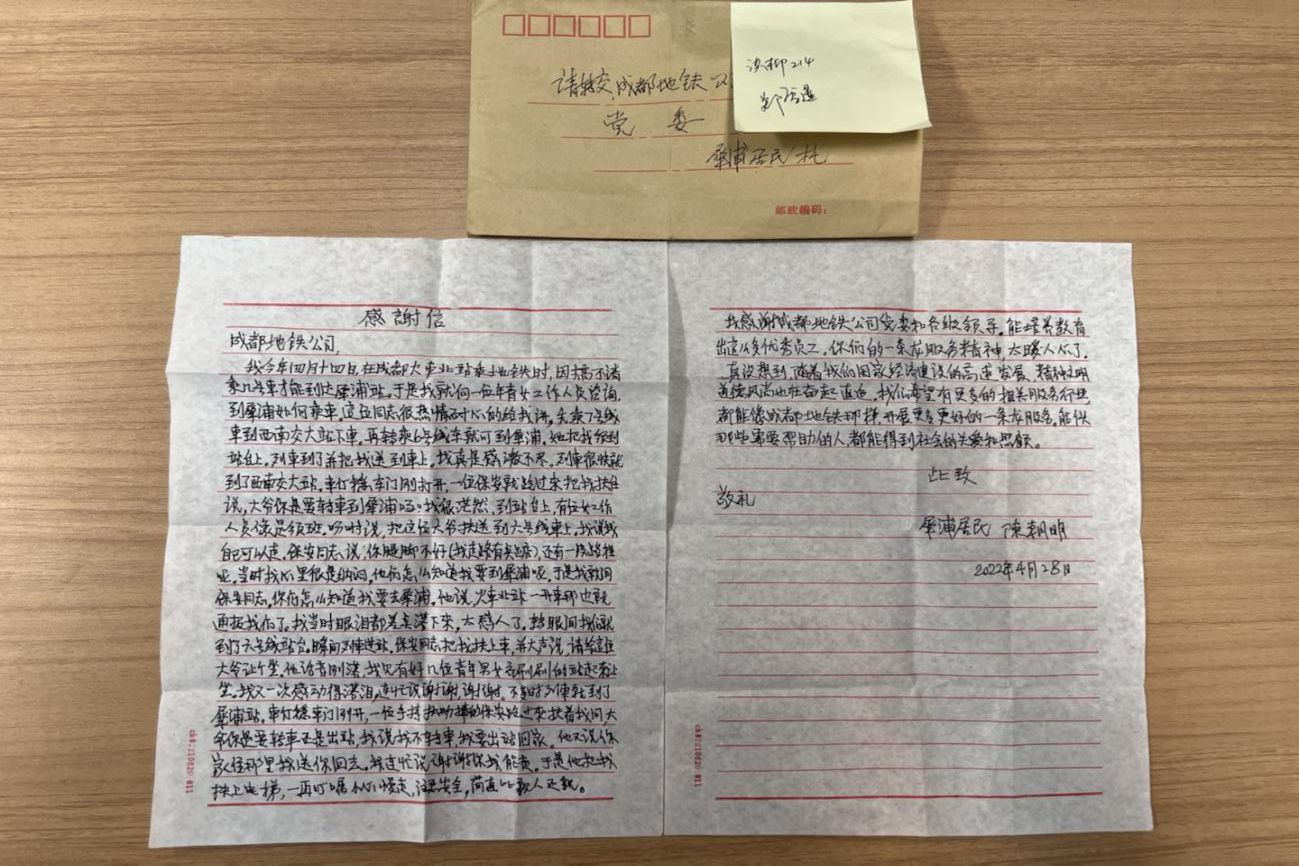 请转交成都地铁公
党 委
犀浦居民/托
邮政编码：
214
感謝信
成都地铁公司,
我今年四月十四日,在成都火车北站乘坐地铁时,因搞不清
乘几号车才能到达犀浦站。于是我就向一位年青女工作人员咨询,
到犀浦如何乘车。这位同志很热情耐心的给我讲,先乘7号线
车到西南交大站下車。再转乘6号线车就可到犀浦。她把我领到
站台上。列車到了并把我送到車上。我真是感激不尽。列車很快就
到了西南交大站。車停穩車门刚打开,一位保安就跑过来把我扶住
说,大爷你是要转車到犀浦吗?我很茫然,到站台上,有位女工作
人员像是领班。吩咐说,把这位大爷扶送到六号线車上。我说我
自己可以走。保安同志说,你腿脚不好(我走路有点),还有一段路程
呢。当时我心里很是纳闷。他们怎么知道我要到犀浦呢。于是我就问
保安同志。你们怎么知道我要去犀浦。他说,火車北站一开車那边就
通接我们了。我当时眼泪都差点滚下来,太感人了。转眼间我们就
到了六号线站台。瞬间列車进站,保安同志把我扶上車,并大声说,请给这位
大爷让个坐。他话音刚落,我见有好几位青年男女齐刷刷的站起来让
坐。我又一次感动得落泪,连忙说谢谢,谢谢。不多时列車就到了
犀浦站。車停穩車门刚开,一位手持的保安跑过来扶着我问,大
爷你是要转車还是出站。我说我不转車,我要出站回家。他又说你
家住那里我送你回去。我连忙说谢谢谢你我能走。于是他把我
扶上电梯,一再叮嘱小心慢走,注意安全,简直比亲人还亲。
我感谢成都地铁公司党委和各级领导。能培养教育
出这么多优秀员工。你们的一条龙服务精神,太暖人心了。
真没想到随着我们国家经济建设的高速发展,精神文明
道德风尚也在奋起直追。我们希望有更多的相关服务行业,
都能像成都地铁那样,开展更多更好的一条龙服务。能使
那些需要帮助的人都能得到社会的关爱和照顾。
此致
敬礼
犀浦居民 陈朝明
2022年4月28日